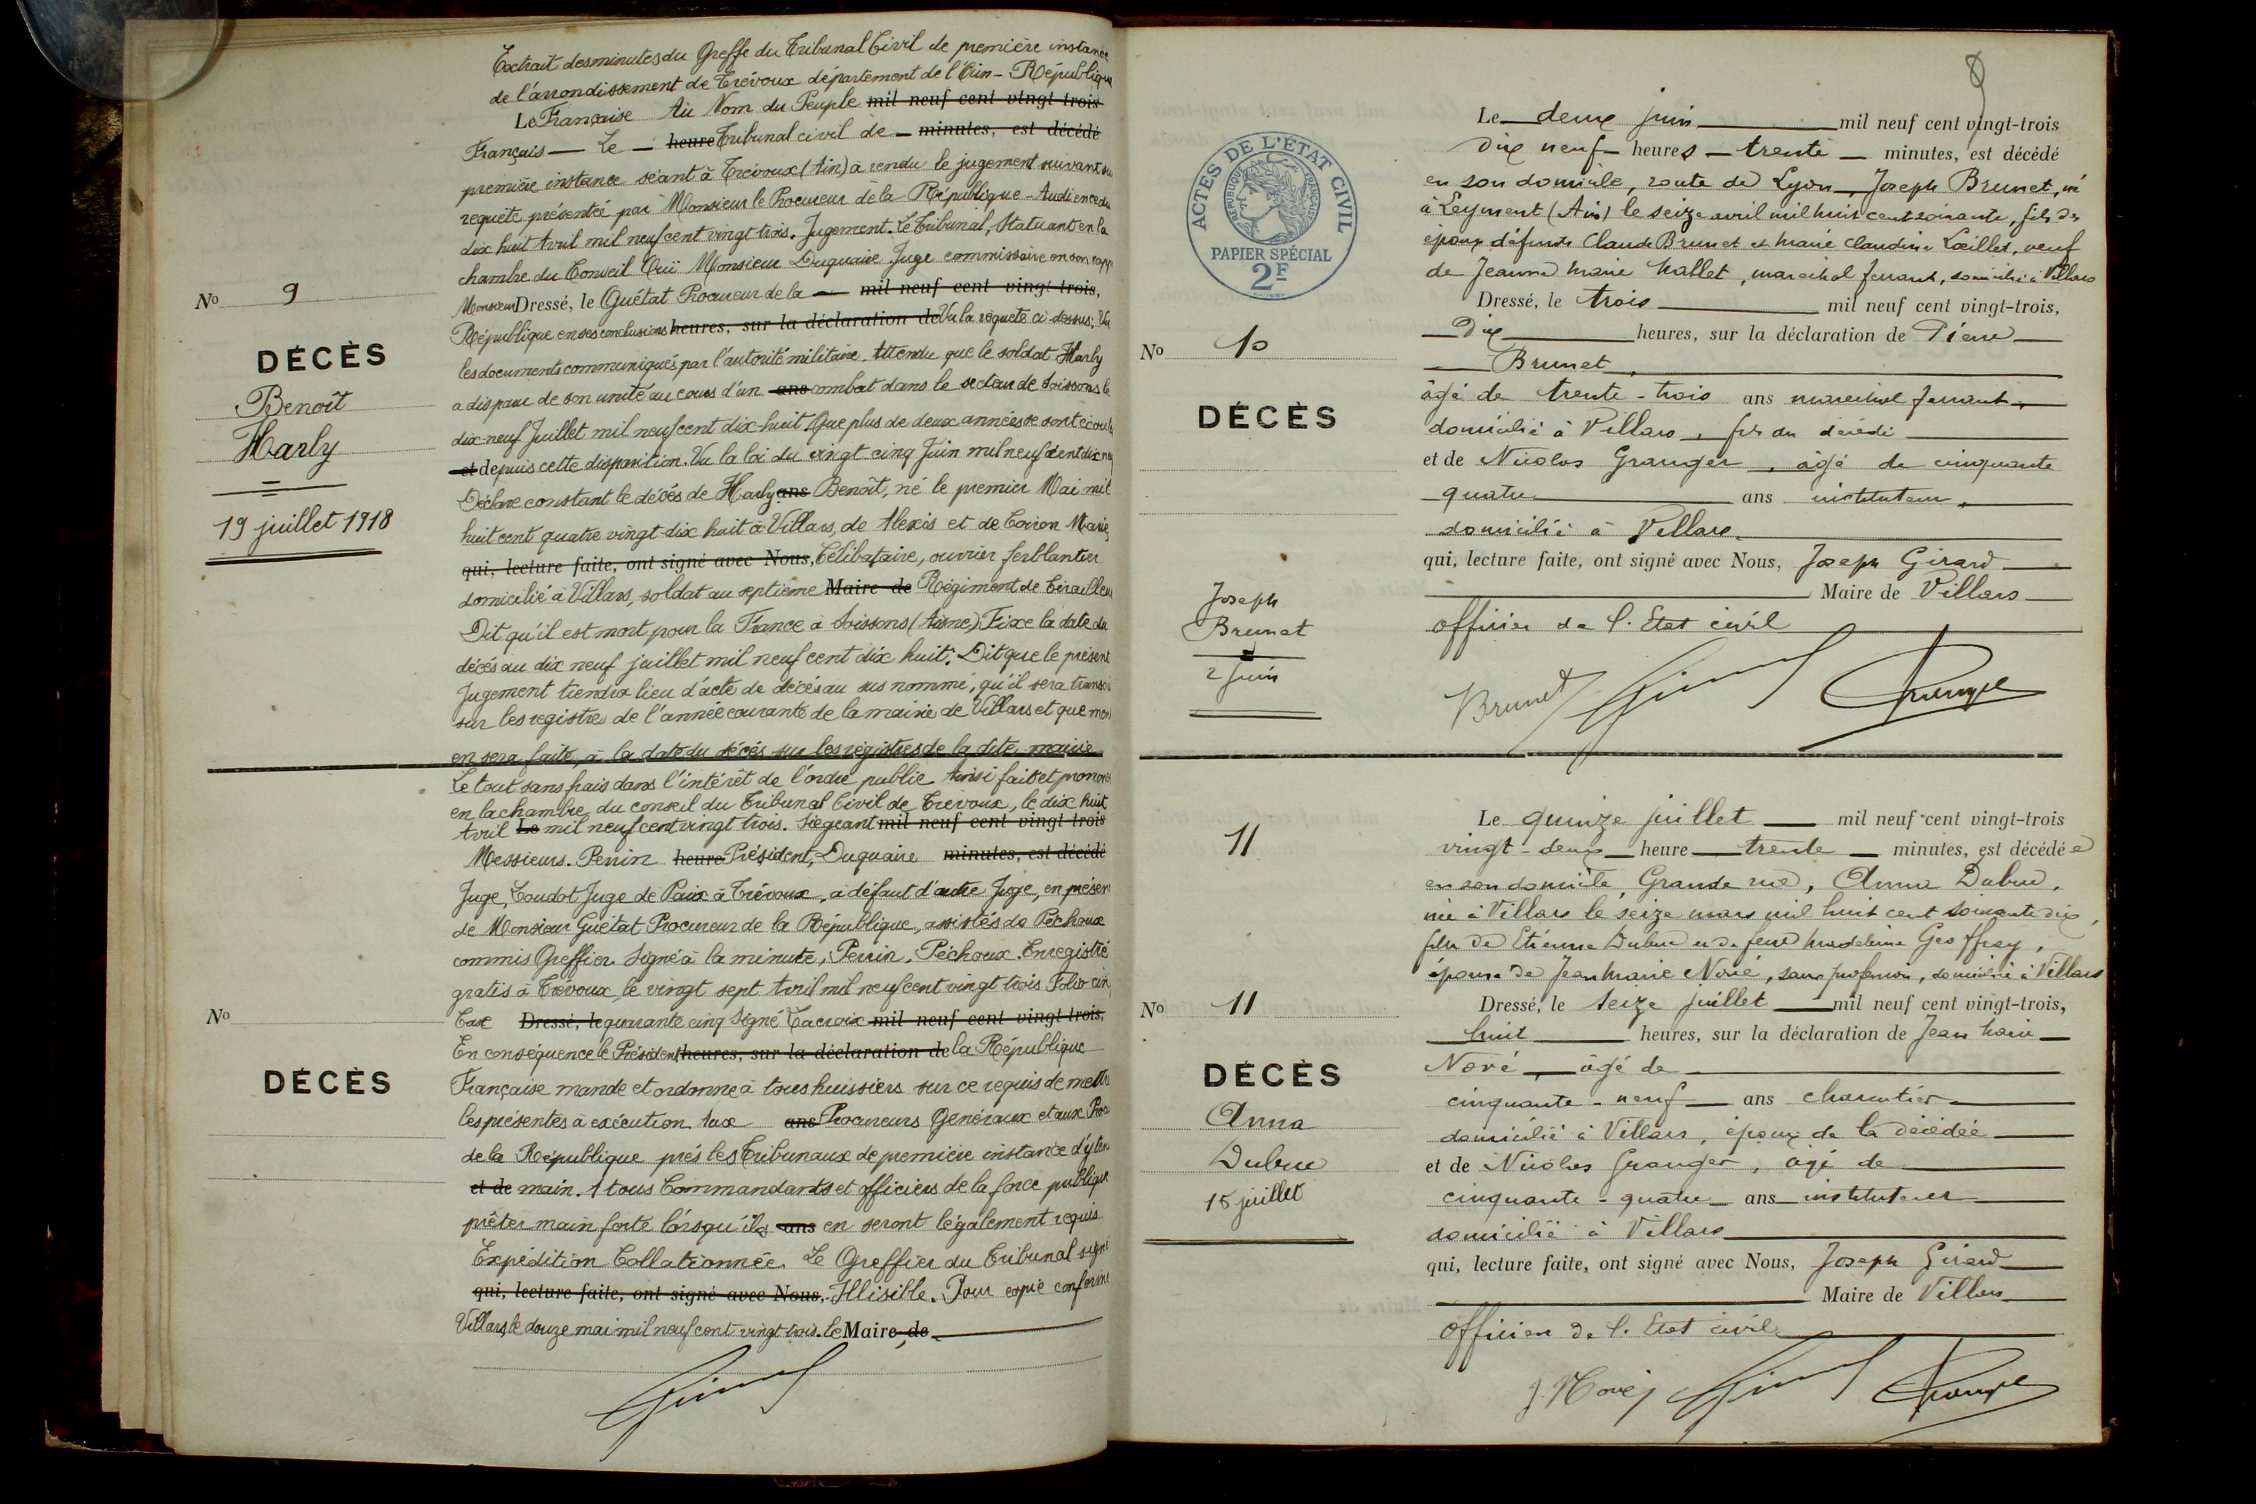 Extrait des minutes du Greffe du Tribunal Civil de première instance
de l'arrondissement de Trévoux département de l'Ain - République
Le Française Au Nom du Peuple mil neuf cent vingt trois
Français — Le — heure Tribunal civil de — minutes, est décédé
première instance séant à Trévoux (Ain) a rendu le jugement suivant su
requête présentée par Monsieur le Procureur de la République - Audience du
dix huit Avril mil neuf cent vingt trois. Jugement. Le Tribunal, Statuant en la
chambre du Conseil Ouï Monsieur Duquaire Juge commissaire en son rapp
Monsieur Dressé, le Guétat Procureur de la — mil neuf cent vingt trois,
République en ses conclusions heures, sur la déclaration de Vu la requête ci-dessus; Vu
les documents communiqués par l'autorité militaire. Attendu que le soldat Harly
a disparu de son unité au cours d'un ans combat dans le secteur de Soissons le
dix-neuf Juillet mil neuf cent dix-huit. Que plus de deux années se sont écoulé
et depuis cette disparition. Vu la loi du vingt cinq Juin mil neuf cent dix neu
Déclare constant le décès de Harly ans Benoît, né le premier Mai mil
huit cent quatre vingt-dix huit à Villars, de Alexis et de Marie,
qui, lecture faite, ont signé avec Nous, Célibataire, ouvrier ferblantier
domicilié à Villars, soldat au septième Maire de Régiment de Tirailleurs
Dit qu'il est mort pour la France à Soissons (Aisne) Fixe la date du
décès au dix neuf juillet mil neuf cent dix huit. Dit que le présent
Jugement tiendra lieu d'acte de décès au sus nommé, qu'il sera transcri
sur les registres de l'année courante de la mairie de Villars et que men
en sera faite, à la date du décès sur les registres de la dite mairie
Le tout sans frais dans l'intérêt de l'ordre public Ainsi fait et prononcé
en la chambre du conseil du Tribunal Civil de Trévoux, le dix huit
Avril Le mil neuf cent vingt trois. Siégeant mil neuf cent vingt trois
Messieurs. Perrin heure Président, Duquaire minutes, est décédé
Juge, Coudot Juge de Paix à Trévoux, à défaut d'autre Juge, en présen
de Monsieur Guétat Procureur de la République, assistés de Péchoux
commis Greffier Signé à la minute, Perrin, Péchoux. Enregistré
gratis à Trévoux, le vingt sept Avril mil neuf cent vingt trois Folio cin
Case Dressé, le quarante cinq Signé Lacroix mil neuf cent vingt trois,
En conséquence le Président heures, sur la déclaration de la République
Française mande et ordonne à tous huissiers sur ce requis de mettre
les présentes à exécution. Aux ans Procureurs Généraux et aux Proc
de la République près les Tribunaux de première instance d'y ten
et de main. A tous Commandants et officiers de la force publique
prêter main forte lorsqu'ils ans en seront légalement requis
Expédition Collationnée. Le Greffier du Tribunal signé
qui, lecture faite, ont signé avec Nous, Illisible. Pour copie conforme
Villars, le douze mai mil neuf cent vingt trois. Le Maire, de
No 9
DÉCÈS
Benoît
Harly
19 juillet 1918
No
DÉCÈS
ACTES DE L'ÉTAT CIVIL
RÉPUBLIQUE FRANÇAISE
PAPIER SPÉCIAL
2F
No 10
DÉCÈS
Joseph
Brunet
2 Juin
Le deux juin mil neuf cent vingt-trois
Dix neuf heures trente minutes, est décédé
en son domicile, route de Lyon, Joseph Brunet, né
à Leyment (Ain) le seize avril mil huit cent soixante, fils des
époux défunts Claude Brunet et Marie Claudine Lœillet, veuf
de Jeanne Marie Mallet, maréchal ferrant, domicilié à Villars
Dressé, le trois mil neuf cent vingt-trois,
Dix heures, sur la déclaration de Pierre
Brunet,
âgé de trente-trois ans maréchal ferrant,
domicilié à Villars, fils du décédé
et de Nicolas Granger, âgé de cinquante
quatre ans instituteur,
domicilié à Villars
qui, lecture faite, ont signé avec Nous, Joseph Girard
Maire de Villars
officier de l'Etat civil
Brunet Granger
11
No 11
DÉCÈS
Anna
Dubue
15 juillet
Le quinze juillet mil neuf cent vingt-trois
vingt-deux heure trente minutes, est décédée
en son domicile, Grande rue, Anna Dubue,
née à Villars le seize mars mil huit cent soixante dix,
fille de Etienne Dubue et de feue Madeleine Geoffray,
épouse de Jean Marie Noré, sans profession, domiciliée à Villars
Dressé, le seize juillet mil neuf cent vingt-trois,
huit heures, sur la déclaration de Jean Marie
Noré, âgé de
cinquante-neuf ans charcutier
domicilié à Villars, époux de la décédée
et de Nicolas Granger, âgé de
cinquante-quatre ans instituteur
domicilié à Villars
qui, lecture faite, ont signé avec Nous, Joseph Girard
Maire de Villars
officier de l'Etat civil
J. Noré Granger